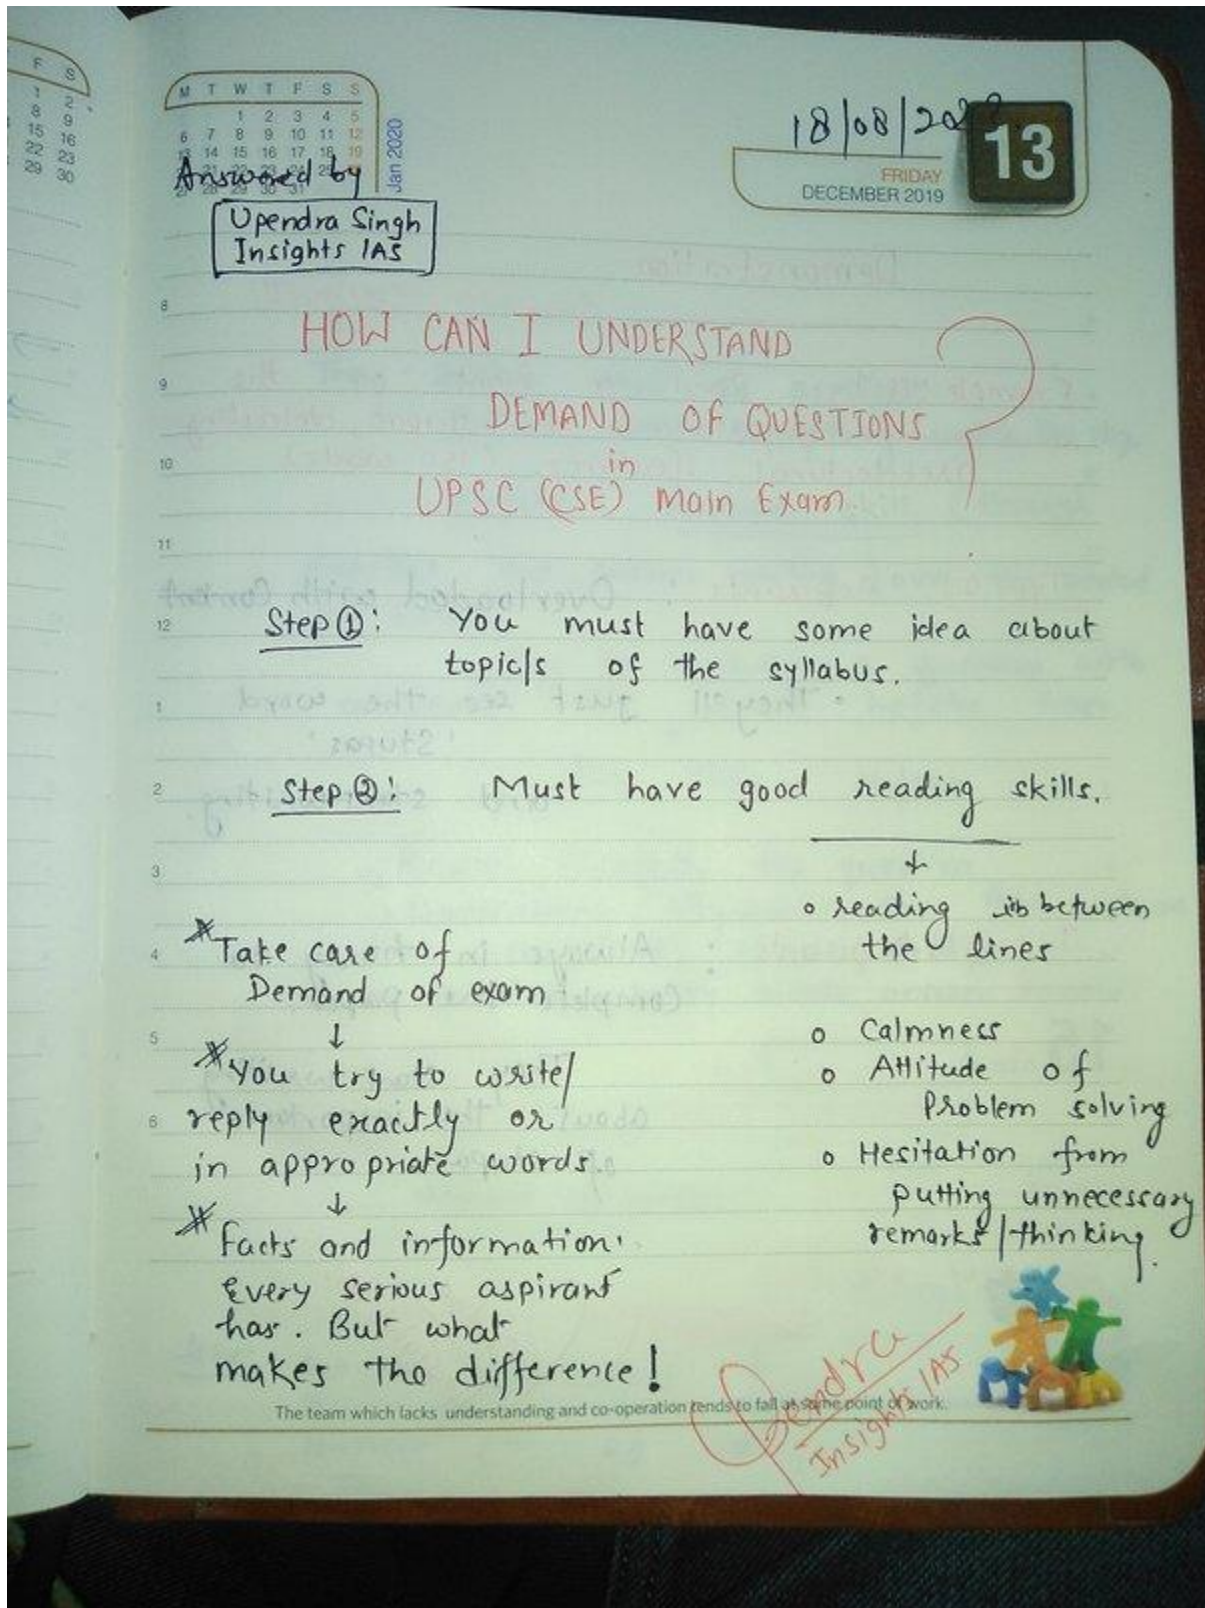 F S
1 2
8 9
15 16
22 23
29 30
M T W T F S S
1 2 3 4 5
6 7 8 9 10 11 12
13 14 15 16 17 18 19
Jan 2020
Answered by
Upendra Singh
Insights IAS
18/08/202
13
FRIDAY
DECEMBER 2019
8
HOW CAN I UNDERSTAND
9
DEMAND OF QUESTIONS ?
10
in
UPSC (CSE) Main Exam.
11
12
Step ①: You must have some idea about
topic/s of the syllabus.
1
2
Step ②: Must have good reading skills.
3
↓
o reading in between
the lines
o Calmness
o Attitude of
Problem solving
o Hesitation from
putting unnecessary
remarks/thinking.
4
* Take care of
Demand of exam
5
↓
* You try to write/
6
reply exactly or
in appropriate words.
↓
* Facts and information.
every serious aspirant
has. But what
makes the difference!
The team which lacks understanding and co-operation tends to fall at some point of work.
Upendra
Insights IAS